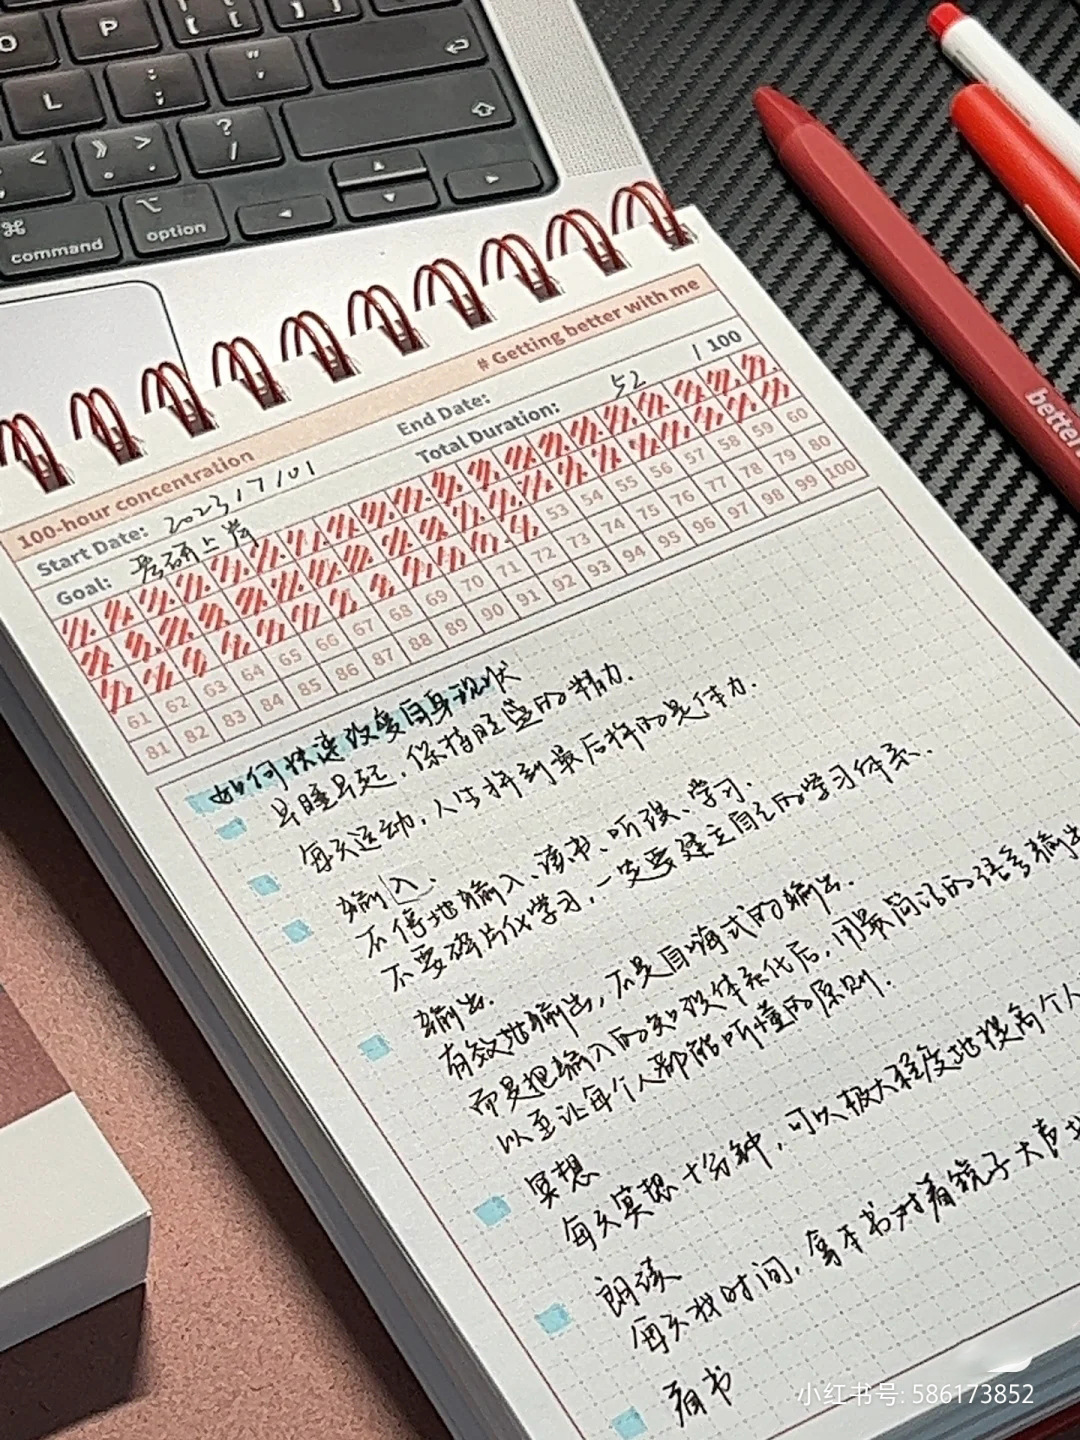 O P { [ } ]
L : ; " '
< , 》 > . ? /
⌘ command ⌥ option
100-hour concentration # Getting better with me
Start Date: 2023/7/01 End Date:
Goal: 考研上岸 Total Duration: 52 / 100
53 54 55 56 57 58 59 60
61 62 63 64 65 66 67 68 69 70 71 72 73 74 75 76 77 78 79 80
81 82 83 84 85 86 87 88 89 90 91 92 93 94 95 96 97 98 99 100
如何快速改变自身现状
早睡早起,保持旺盛的精力.
每天运动,人生拼到最后拼的是体力.
输入.
不停地输入、读书、听课、学习.
不要碎片化学习,一定要建立自己的学习体系.
输出.
有效地输出,不是自嗨式的输出.
而是把输入的知识体系化后,用最简洁的语言输出
以至让每个人都能听懂的原则.
冥想
每天冥想十分钟,可以极大程度地提高个人
朗读
每天找时间,拿本书对着镜子大声地
看书
better
小红书号: 586173852